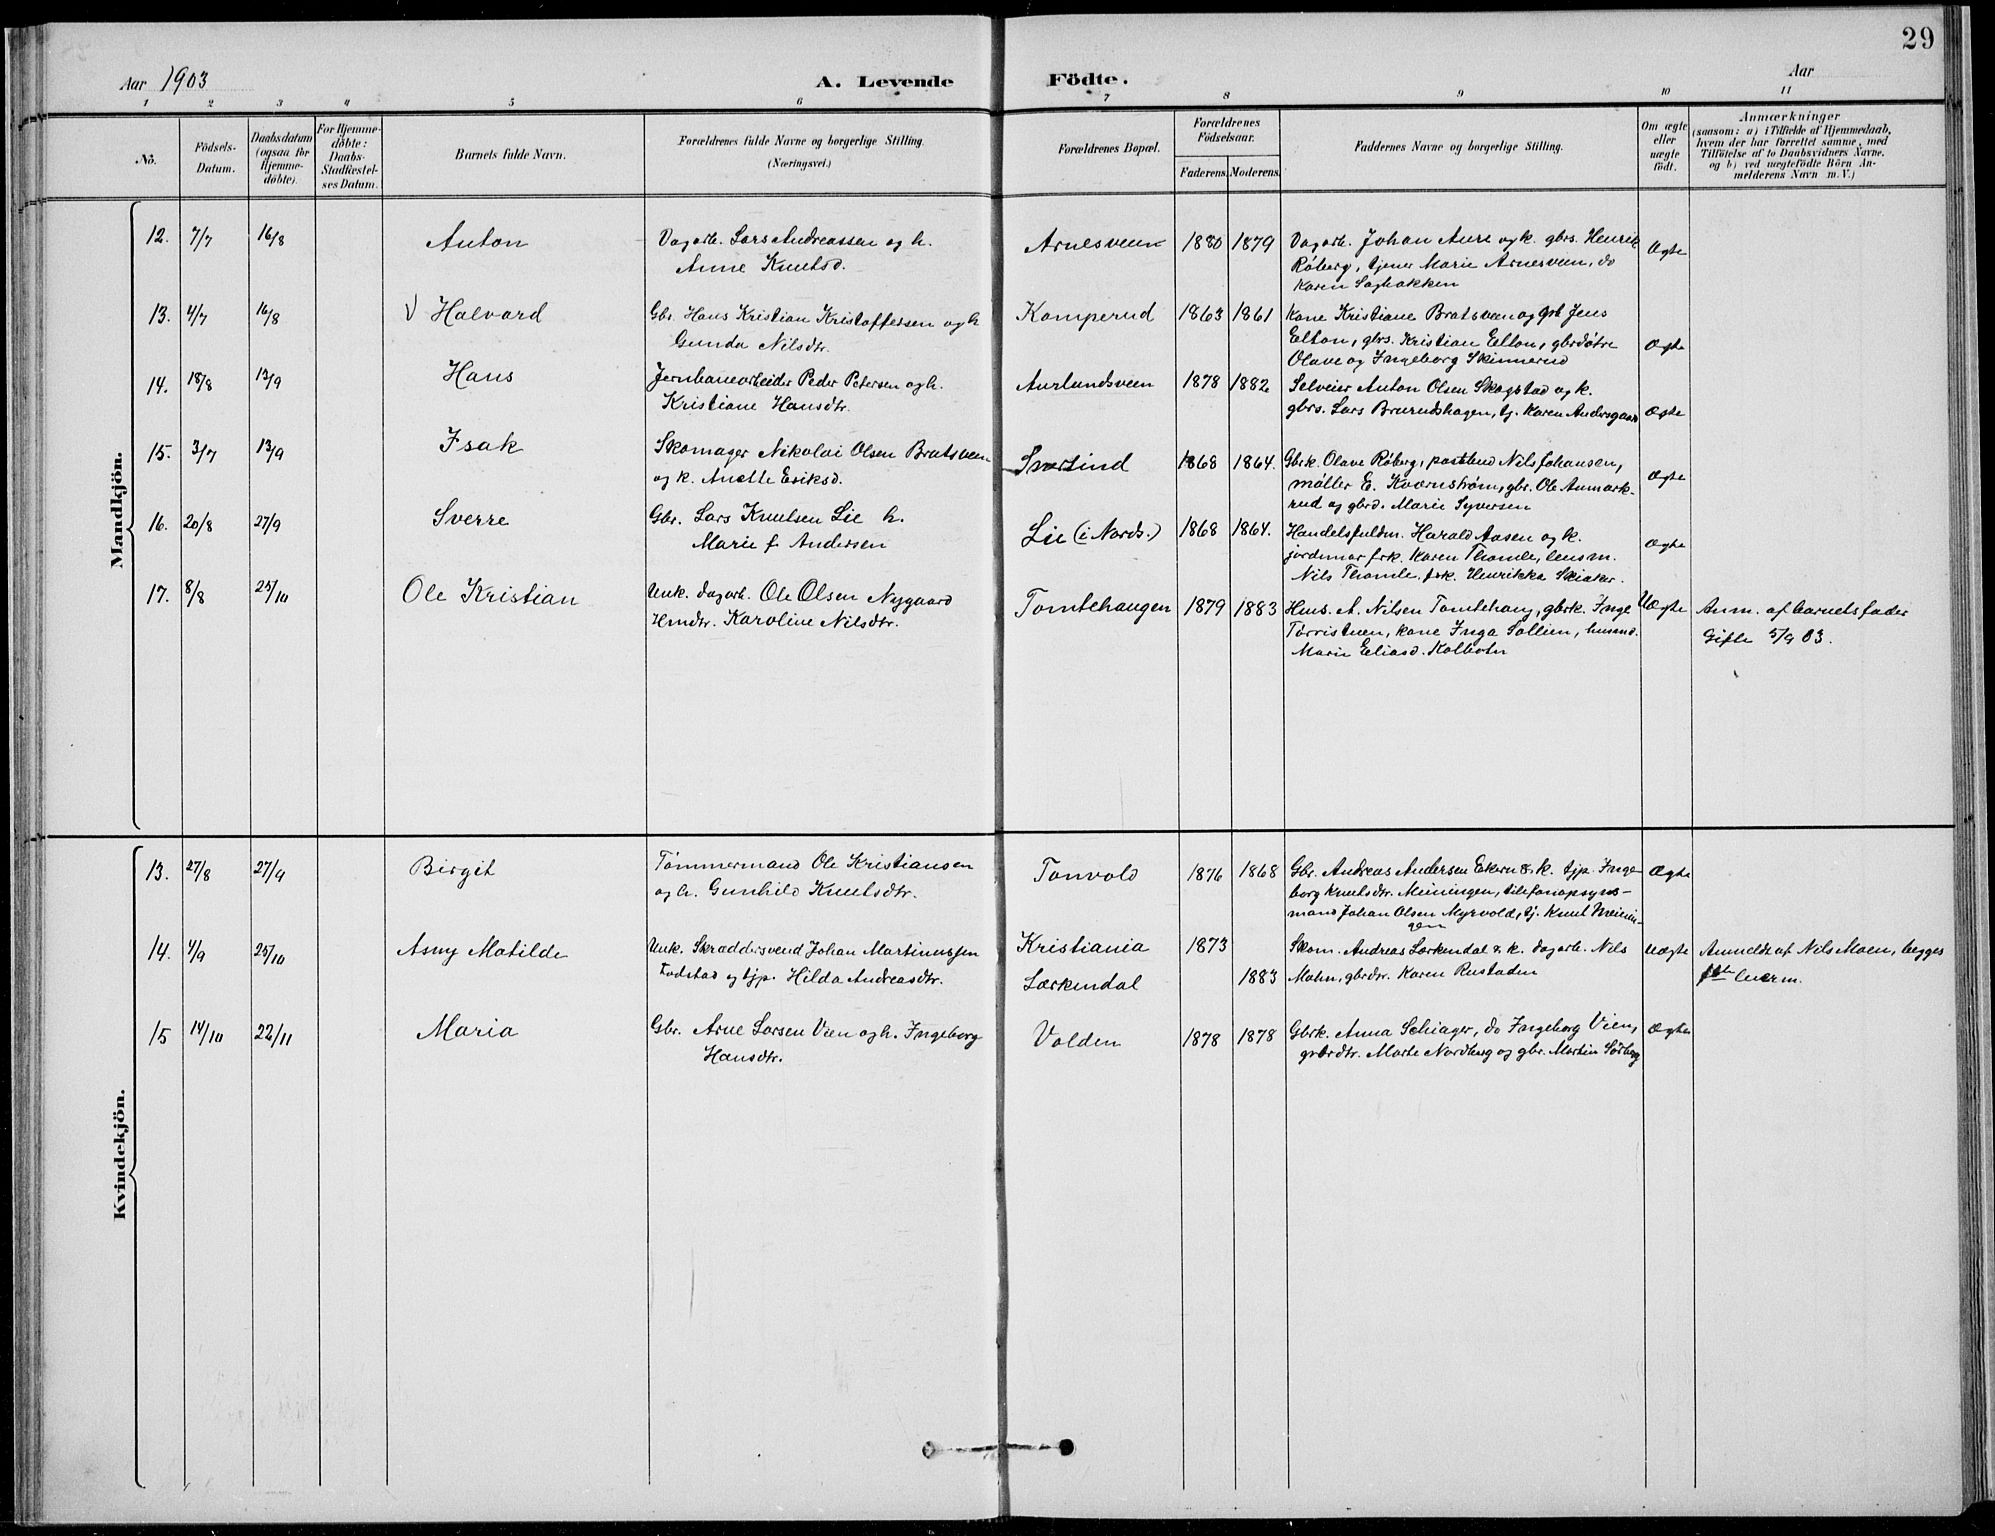 29
Aar 1903
A. Levende Födte.
Aar
1 2 3 4 5 6 7 8 9 10 11
No.
Födsels-Datum.
Daabsdatum (ogsaa for Hjemmedöbte).
For Hjemmedöbte: Daabs-Stadfæstelses Datum.
Barnets fulde Navn.
Forældrenes fulde Navne og borgerlige Stilling.
(Næringsvei.)
Forældrenes Bopæl.
Forældrenes Födselsaar.
Faderens. Moderens.
Faddernes Navne og borgerlige Stilling.
Om ægte eller uægte födt.
Anmærkninger
(saasom: a) i Tilfælde af Hjemmedaab,
hvem der har forrettet samme, med
Tilföielse af to Daabsvidners Navne,
og b) ved uægtefödte Börn An-
melderens Navn m. V.)
Mandkjön.
12. 7/7 16/8 Anton Dagarb. Lars Andreassen og h. Arnesveen 1880 1879 Dagarb. Johan Aure og k. gbrs. Henrik Ægte
Anne Knutsd. Røberg, tjener Marie Arnesveen, do
Karen Saghakken
13. 4/7 16/8 Halvard Gbr. Hans Kristian Kristoffersen og h Kamperud 1863 1861 Kone Kristiane Bratsveen og gbr Jens
Gunda Nilsdtr. Elton, gbrs. Kristian Elton, gbrdøtre Ægte
Olave og Ingeborg Skinnerud
14. 18/8 13/9 Hans Jernbanearbeider Peder Petersen og h. Aurlundsveen 1878 1882 Selveier Anton Olsen Skogstad og k.
Kristiane Hansdtr. gbrs. Lars Brurudshagen, tj. Karen Andersgaard Ægte
15. 3/7 13/9 Isak Skomager Nikolai Olsen Bratsveen 1868 1864. Gbrk. Olave Røberg, postbud Nils Johansen,
og k. Anette Eriksd. møller E. Kværnstrøm, gbr. Ole Aumark- Ægte
rud og gbrd. Marie Syversen
16. 20/8 27/9 Sverre Gbr. Lars Knutsen Lie h. Lie (i Nords.) 1868 1864. Handelsfuldm. Harald Aasen og k.
Marie f. Andersen jordemor frk. Karen Thomle, lensm. Ægte
Nils Thomle, frk. Henrikka Skiaker.
17. 8/8 25/10 Ole Kristian Unk. dagarb. Ole Olsen Nygaard Tomtehaugen 1879 1883 Hus. A. Nilsen Tomtehaug, gbrk. Inge Uægte Anm. af barnets fader
Hmdtr. Karoline Nilsdtr. Torristuen, kone Inga Sollien, husmd. Gifte 5/9 03.
Marie Eliasd. Kolbotn
Kvindekjön.
13. 27/8 27/9 Birgit Tømmermand Ole Kristiansen Tonvold 1876 1868 Gbr. Andreas Andersen Ekern & k. tjp. Inge- Ægte
og h. Gunhild Knutsdtr. borg Knutsdtr. Meiningen, telefonopsyns-
mand Johan Olsen Myrvold, tj. Knut Meinin-
gen
14. 4/9 25/10 Asny Matilde Unk. Skræddersvend Johan Martinussen Kristiania 1873 Skom. Andreas Lærkendal & k. dagarb. Nils Uægte Anmeldt af Nils Moen, begges
Lodstad og tjp. Hilda Andreasdtr. Lærkendal 1883 Malm, gbrdtr. Karen Rustaden 1ste leierm.
15 14/10 22/11 Maria Gbr. Arne Larsen Vien og h. Ingeborg Volden 1878 1878 Gbrk. Anna Schiager, do Ingeborg Vien, Ægte
Hansdtr. gbrdtr. Marte Nordberg og gbr. Martin Solberg